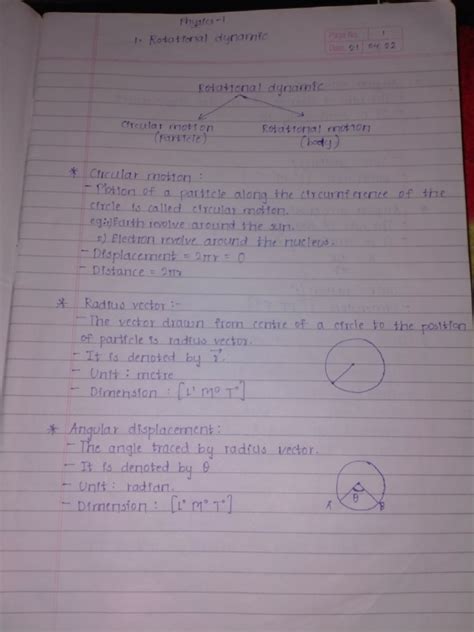 Physics-1
1. Rotational dynamic
Page No. 1
Date 21 04 22
Rotational dynamic
Circular motion Rotational motion
(Particle) (body)
* Circular motion :
- Motion of a particle along the circumference of the
circle is called circular motion.
eg:-1) Earth revolve around the sun.
2) Electron revolve around the nucleus.
- Displacement = 2πr = 0
- Distance = 2πr
* Radius vector :-
- The vector drawn from centre of a circle to the position
of particle is radius vector.
- It is denoted by r⃗.
- Unit : metre
- Dimension : [L¹ M⁰ T⁰]
* Angular displacement :
- The angle traced by radius vector.
- It is denoted by θ
- Unit : radian.
- Dimension : [L⁰ M⁰ T⁰]
θ
A B